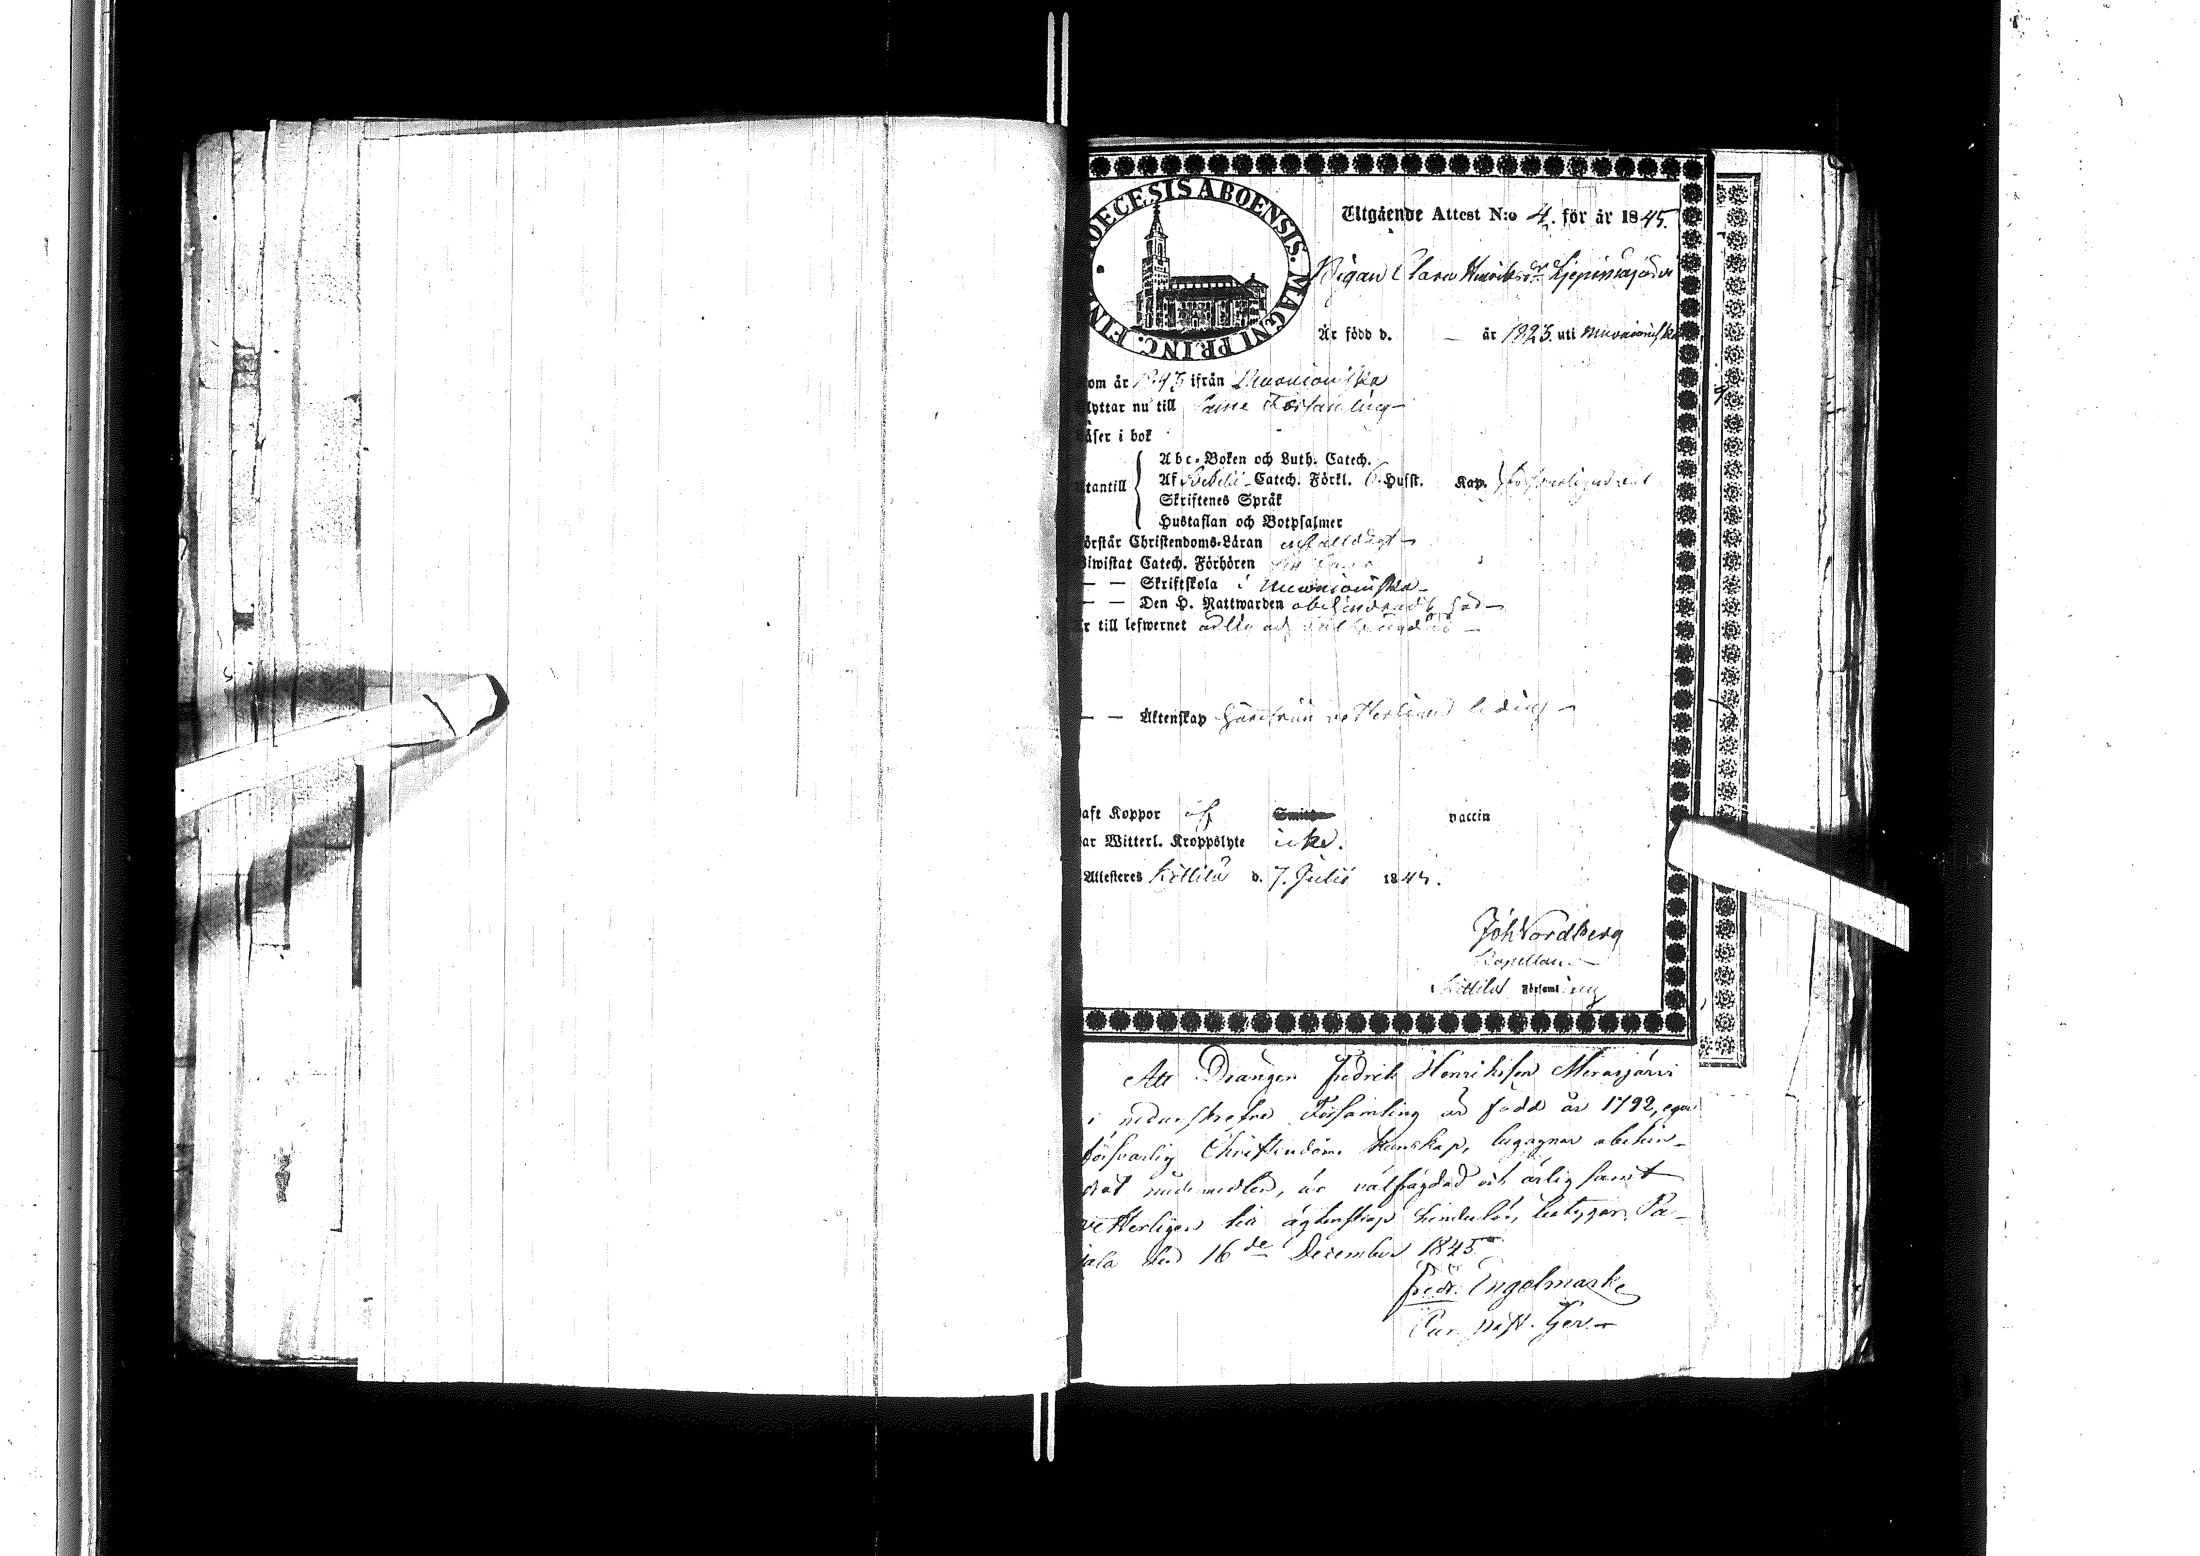 DIOECESIS ABOENSIS. MAGNI PRINC. FIN
Utgående Attest N:o 4. för år 1845.
Pigan Clara Henriksdr
Är född d. — år 1823. uti Muonioniska
om år 1843 ifrån Muonioniska
lyttar nu till samme Församling
äser i bok
Abc-Boken och Luth. Catech.
tantill Af Catech. Förkl. Hufst. Kap. försvarligt
Skriftenes Språk
Hustaflan och Botpsalmer
örstår Christendoms-Läran enfaldigt
iwistat Catech. Förhören
— — Skriftskola i Muonioniska
— — Den H. Nattwarden obehindradt
r till lefwernet ärlig och välfrägdad
— — Äktenskap härifrån vetterligen ledig
aft Koppor vaccin
ar Witterl. Kroppslyte icke.
Attesteres Kittilä d. 7. Julii 1845.
Joh Nordberg
Kapellan
i Kittilä Församling
Att Drängen Fredrik Henriksson Merasjärvi
i nedanskrefne Församling är född år 1792, eger
försvarlig Christendoms kunskap, begagnar obehin-
drat nådemedlen, är välfrägdad och ärlig samt
vetterligen till ägtenskap hinderlös, betygar. Pa-
jala den 16de December 1845
Fredr. Engelmark
Past.